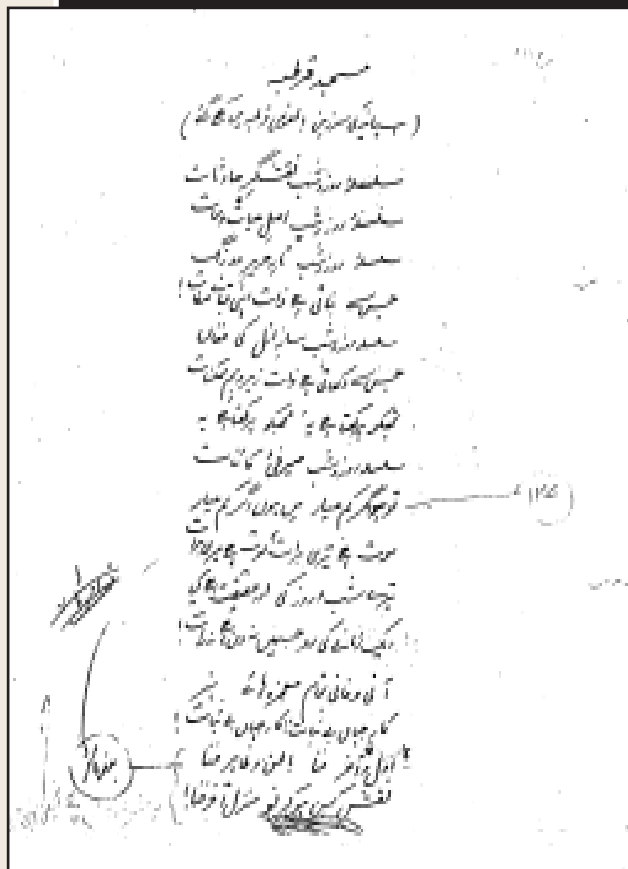 مسجد قرطبہ
سلسلۂ روز و شب نقشگر حادثات
سلسلۂ روز و شب اصل حیات و ممات
سلسلۂ روز و شب تار حریر دو رنگ
جس سے بناتی ہے ذات اپنی قبائے صفات!
سلسلۂ روز و شب ساز ازل کی فغاں
جس سے دکھاتی ہے ذات زیر و بم ممکنات
تجھکو پرکھتا ہے یہ مجھکو پرکھتا ہے یہ
سلسلۂ روز و شب صیرفیٔ کائنات
تو ہو اگر کم عیار میں ہوں اگر کم عیار
موت ہے تیری برات موت ہے میری برات
تیرے شب و روز کی اور حقیقت ہے کیا
ایک زمانے کی رو جس میں نہ دن ہے نہ رات!
آنی و فانی تمام معجزہ ہائے ہنر
کار جہاں بے ثبات! کار جہاں بے ثبات!
اول و آخر فنا باطن و ظاہر فنا
نقش کہن ہو کہ نو منزل آخر فنا!